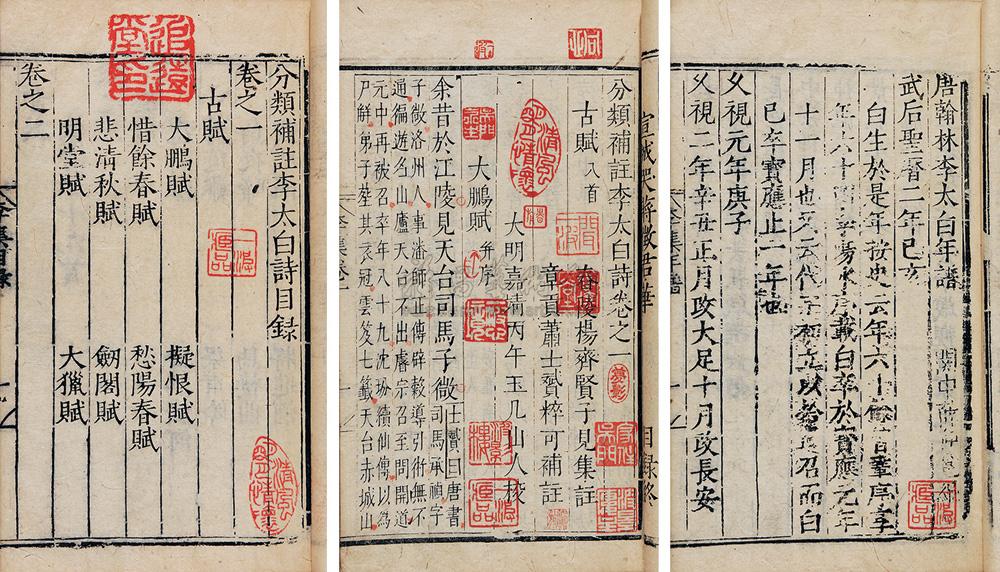 追遠堂印
分類補註李太白詩目録
卷之一
古賦
大鵬賦 擬恨賦
惜餘春賦 愁陽春賦
悲清秋賦 劒閣賦
明堂賦 大獵賦
卷之二
目録終
分類補註李太白詩卷之一
古賦八首
舂陵楊齊賢子見集註
章貢蕭士贇粹可補註
大明嘉靖丙午玉几山人校
大鵬賦并序
余昔於江陵見天台司馬子微士贇曰唐書
司馬承禎字
子微洛州人事潘師正傳辟穀導引術無不
通徧遊名山廬天台不出睿宗召至問開道
元中再被召卒年八十九沈玢續仙傳以為
尸解弟子葬其衣冠雲笈七籤天台赤城山
唐翰林李太白年譜
武后聖曆二年己亥
白生於是年按史云年六十
年六十四陽冰序載白卒於寶應元年
十一月也又云代宗立以召而白
已卒寶應止一年也
久視元年庚子
久視二年辛丑正月改大足十月改長安